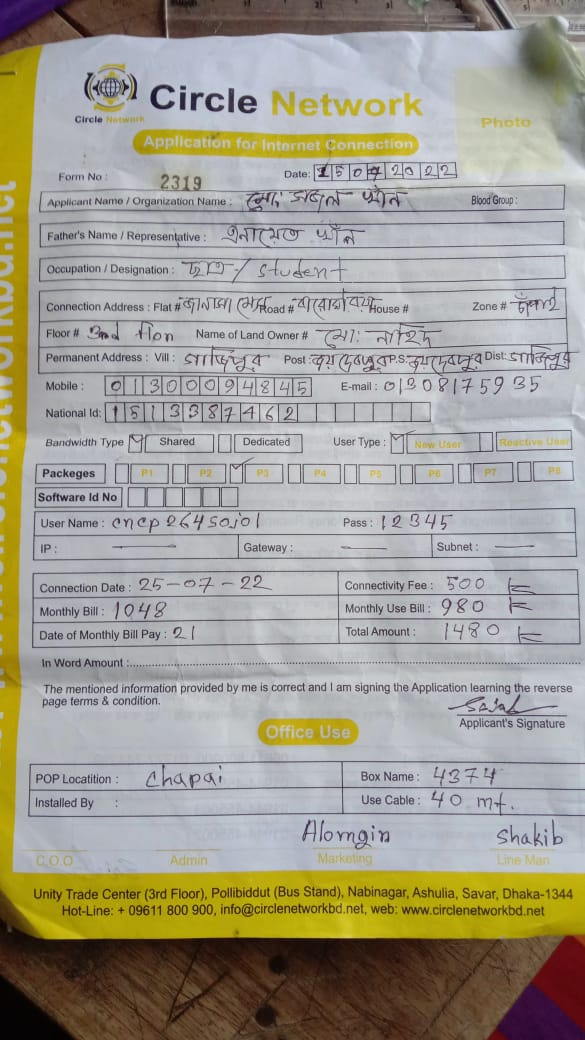 Circle Network
Circle Network
Application for Internet Connection
Photo
Form No : 2319
Date: 15072022
Applicant Name / Organization Name : মো: সজল খাঁন Blood Group :
Father's Name / Representative : এনায়েত খাঁন
Occupation / Designation : ছাত্র / student
Connection Address : Flat # Road # House # Zone #
Floor # 3nd Name of Land Owner # মো: নাহিদ
Permanent Address : Vill : গাজিপুর Post : জয়দেবপুর P.S: জয়দেবপুর Dist: গাজিপুর
Mobile : 01300094845 E-mail : 01308175935
National Id: 1513387462
Bandwidth Type Shared Dedicated User Type : New User Reactive User
Packeges P1 P2 P3 P4 P5 P6 P7 P8
Software Id No
User Name : cncp2645ojol Pass : 12345
IP : Gateway : Subnet :
Connection Date : 25-07-22 Connectivity Fee : 500
Monthly Bill : 1048 Monthly Use Bill : 980
Date of Monthly Bill Pay : 21 Total Amount : 1480
In Word Amount :
The mentioned information provided by me is correct and I am signing the Application learning the reverse
page terms & condition.
Applicant's Signature
Office Use
POP Locatition : Chapai Box Name : 4374
Installed By : Use Cable : 40 mt.
Alomgin Shakib
C.O.O Admin Marketing Line Man
Unity Trade Center (3rd Floor), Pollibiddut (Bus Stand), Nabinagar, Ashulia, Savar, Dhaka-1344
Hot-Line: + 09611 800 900, info@circlenetworkbd.net, web: www.circlenetworkbd.net